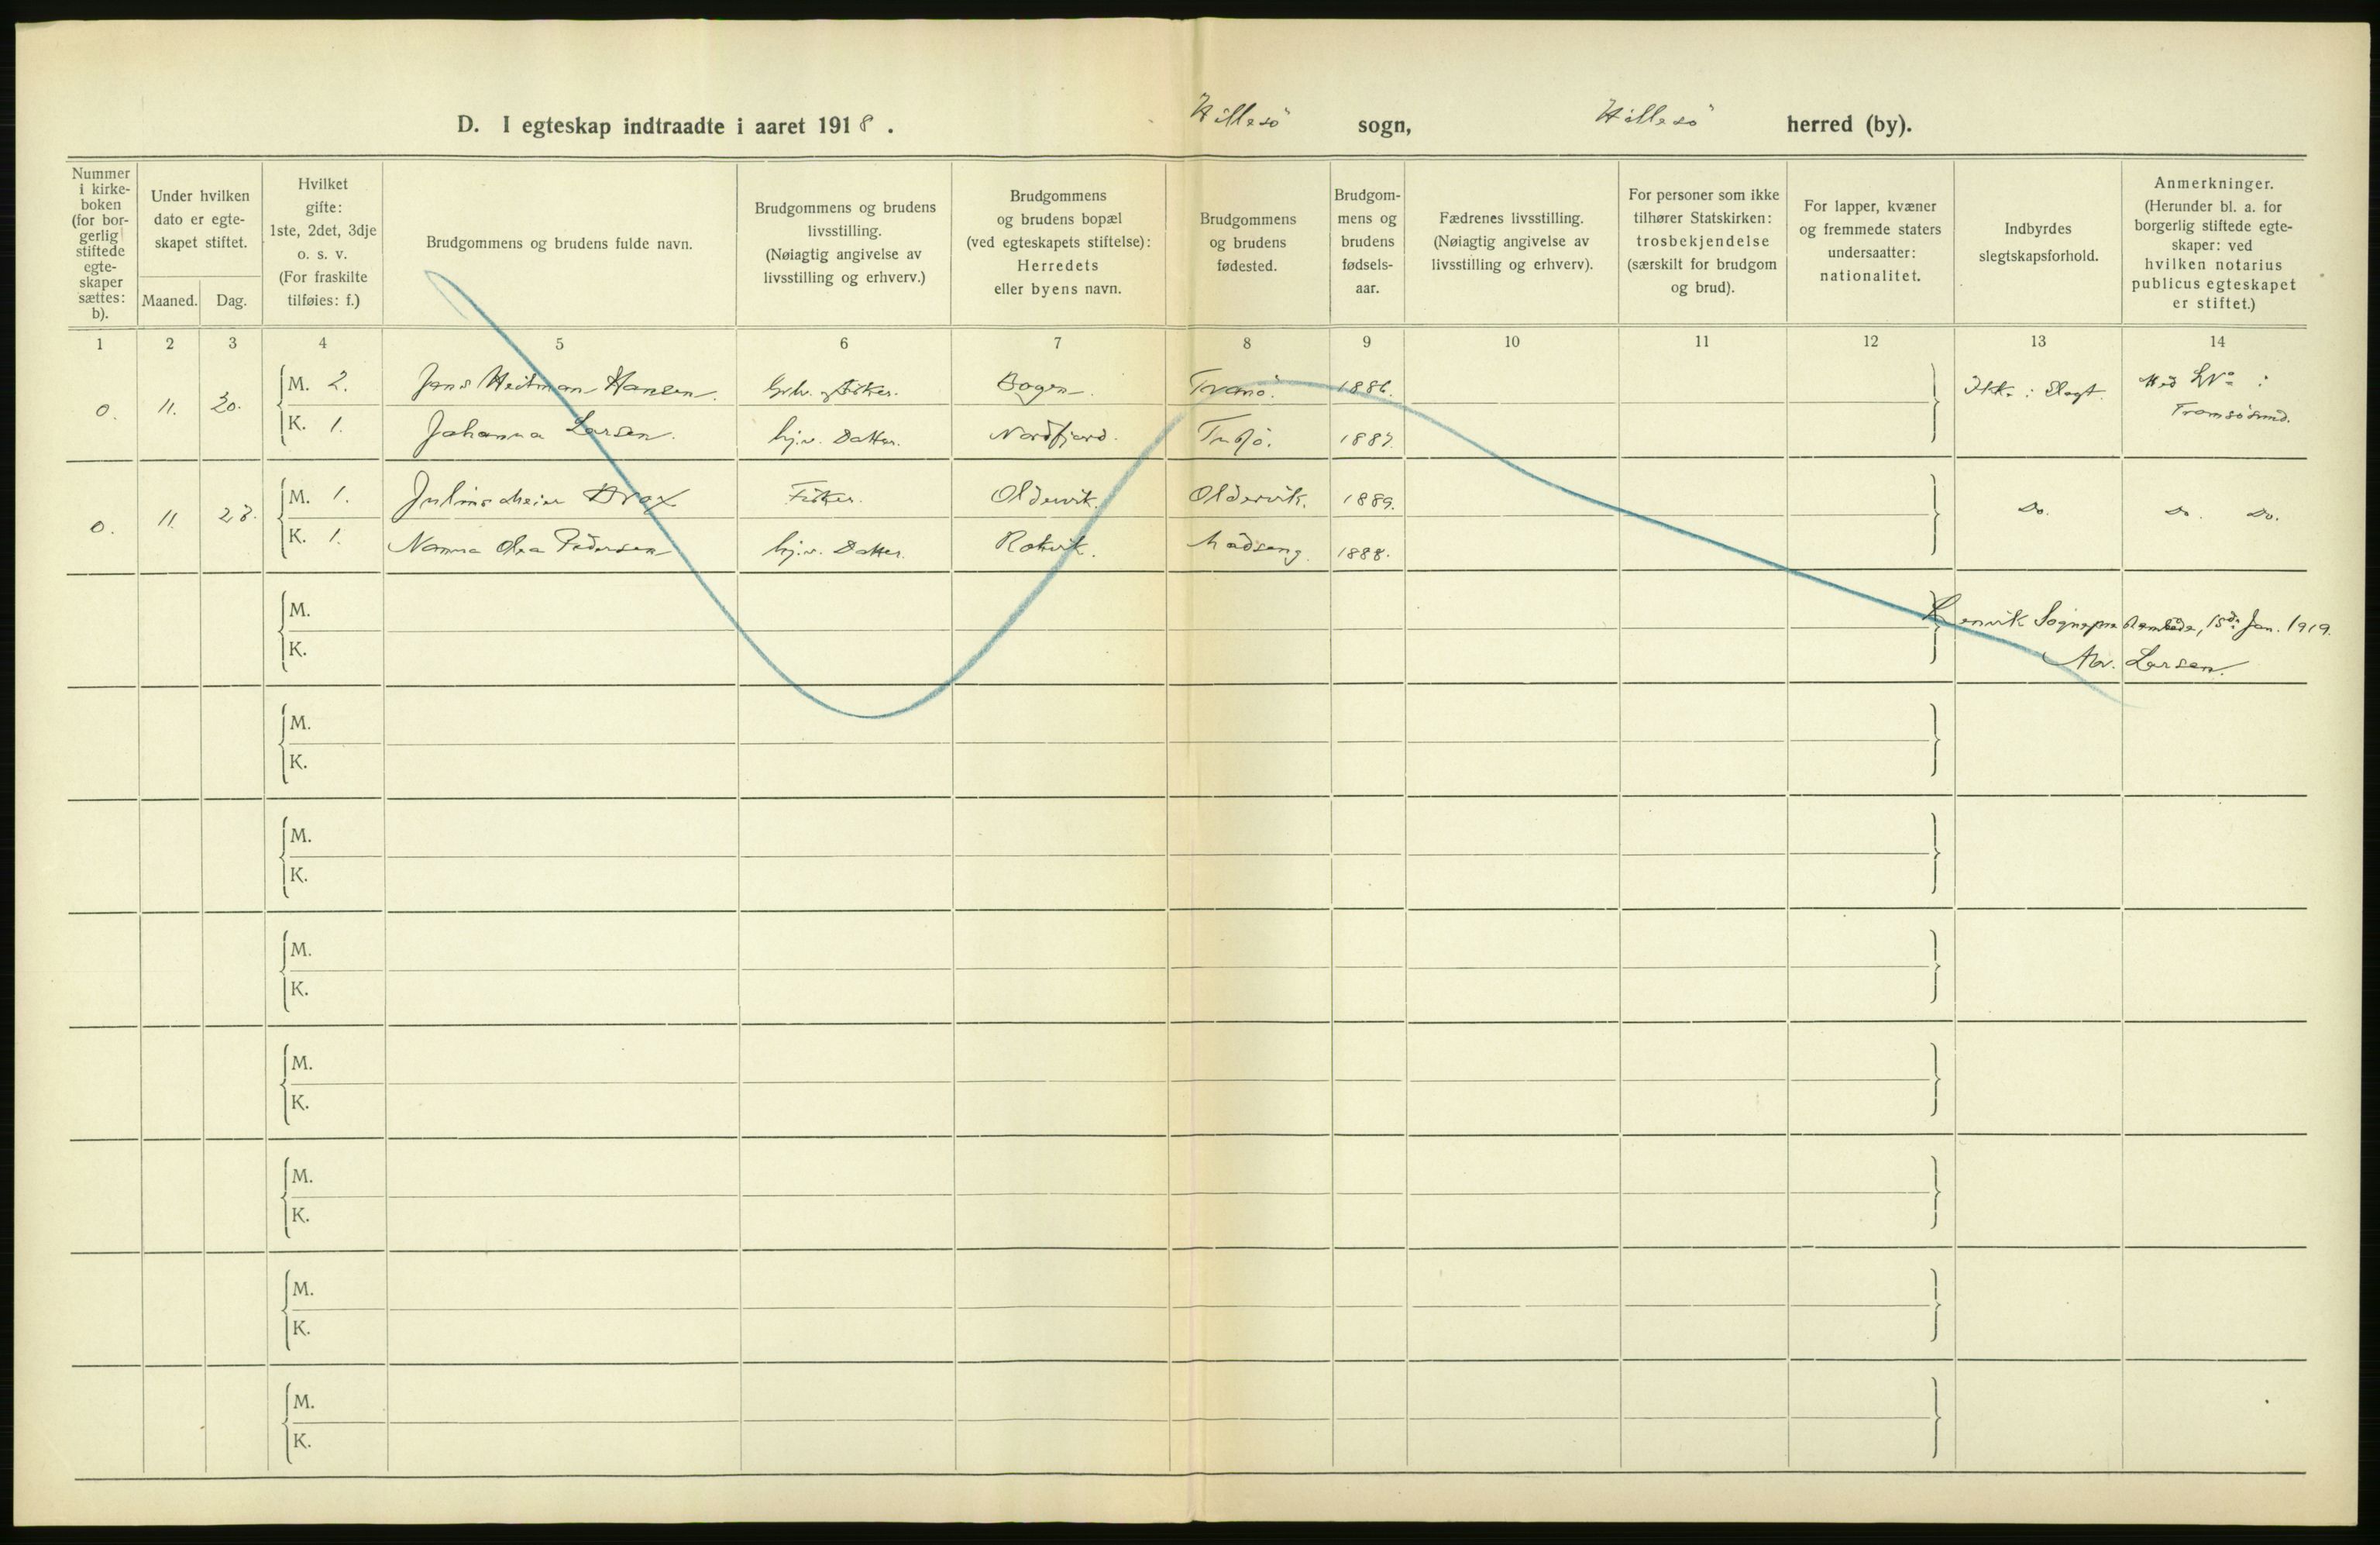 D. I egteskap indtraadte i aaret 1918. Hillesö sogn, Hillesö herred (by).
Nummer
i kirke-
boken
(for bor-
gerlig
stiftede
egte-
skaper
sættes:
b).
Under hvilken
dato er egte-
skapet stiftet.
Maaned. Dag.
Hvilket
gifte:
1ste, 2det, 3dje
o. s. v.
(For fraskilte
tilføies: f.)
Brudgommens og brudens fulde navn.
Brudgommens og brudens
livsstilling.
(Nøiagtig angivelse av
livsstilling og erhverv.)
Brudgommens
og brudens bopæl
(ved egteskapets stiftelse):
Herredets
eller byens navn.
Brudgommens
og brudens
fødested.
Brudgom-
mens og
brudens
fødsels-
aar.
Fædrenes livsstilling.
(Nøiagtig angivelse av
livsstilling og erhverv).
For personer som ikke
tilhører Statskirken:
trosbekjendelse
(særskilt for brudgom
og brud).
For lapper, kvæner
og fremmede staters
undersaatter:
nationalitet.
Indbyrdes
slegtskapsforhold.
Anmerkninger.
(Herunder bl. a. for
borgerlig stiftede egte-
skaper: ved
hvilken notarius
publicus egteskapet
er stiftet.)
1 2 3 4 5 6 7 8 9 10 11 12 13 14
0. 11. 30.
M. 2. Jens Heitman Hansen. Fisker. Bogen. Tranö. 1886. Ikke i Slegt.
K. 1. Johanna Larsen. hj.v. Datter. Nordfjord. 1887. Tromsösund.
0. 11. 23.
M. 1. Julius Meier Fisker. Oldervik. Oldervik. 1889. Do. Do. Do.
K. 1. Olea Pedersen hj.v. Datter. Rotvik. 1888.
M.
K.
Lenvik Sogneprestembede, 15de Jan. 1919.
Larsen.
M.
K.
M.
K.
M.
K.
M.
K.
M.
K.
M.
K.
M.
K.